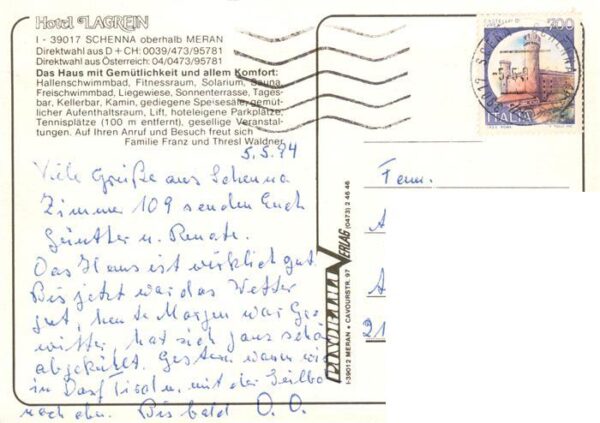 Hotel LAGREIN
I - 39017 SCHENNA oberhalb MERAN
Direktwahl aus D + CH: 0039/473/95781
Direktwahl aus Österreich: 04/0473/95781
Das Haus mit Gemütlichkeit und allem Komfort:
Hallenschwimmbad, Fitnessraum, Solarium, Sauna,
Freischwimmbad, Liegewiese, Sonnenterrasse, Tages-
bar, Kellerbar, Kamin, gediegene Speisesäle, gemüt-
licher Aufenthaltsraum, Lift, hoteleigene Parkplätze,
Tennisplätze (100 m entfernt), gesellige Veranstal-
tungen. Auf Ihren Anruf und Besuch freut sich
Familie Franz und Thresl Waldner
5.5.84
Viele Grüße aus Schenna
Zimmer 109 senden Euch
Günther u. Renate.
Das Haus ist wirklich gut
Bis jetzt war das Wetter
gut, heute Morgen war Ge
witter, hat sich ganz schö
abgekühlt. Gestern waren wi
in Dorf Tirol u. mit der Seilba
nach oben. Bis bald O. O.
VERLAG (0473) 2 46 46
I-39012 MERAN • CAVOURSTR. 97
CASTELLO DI
200
ITALIA
39017 SCHENNA
Fam.
A
A
21